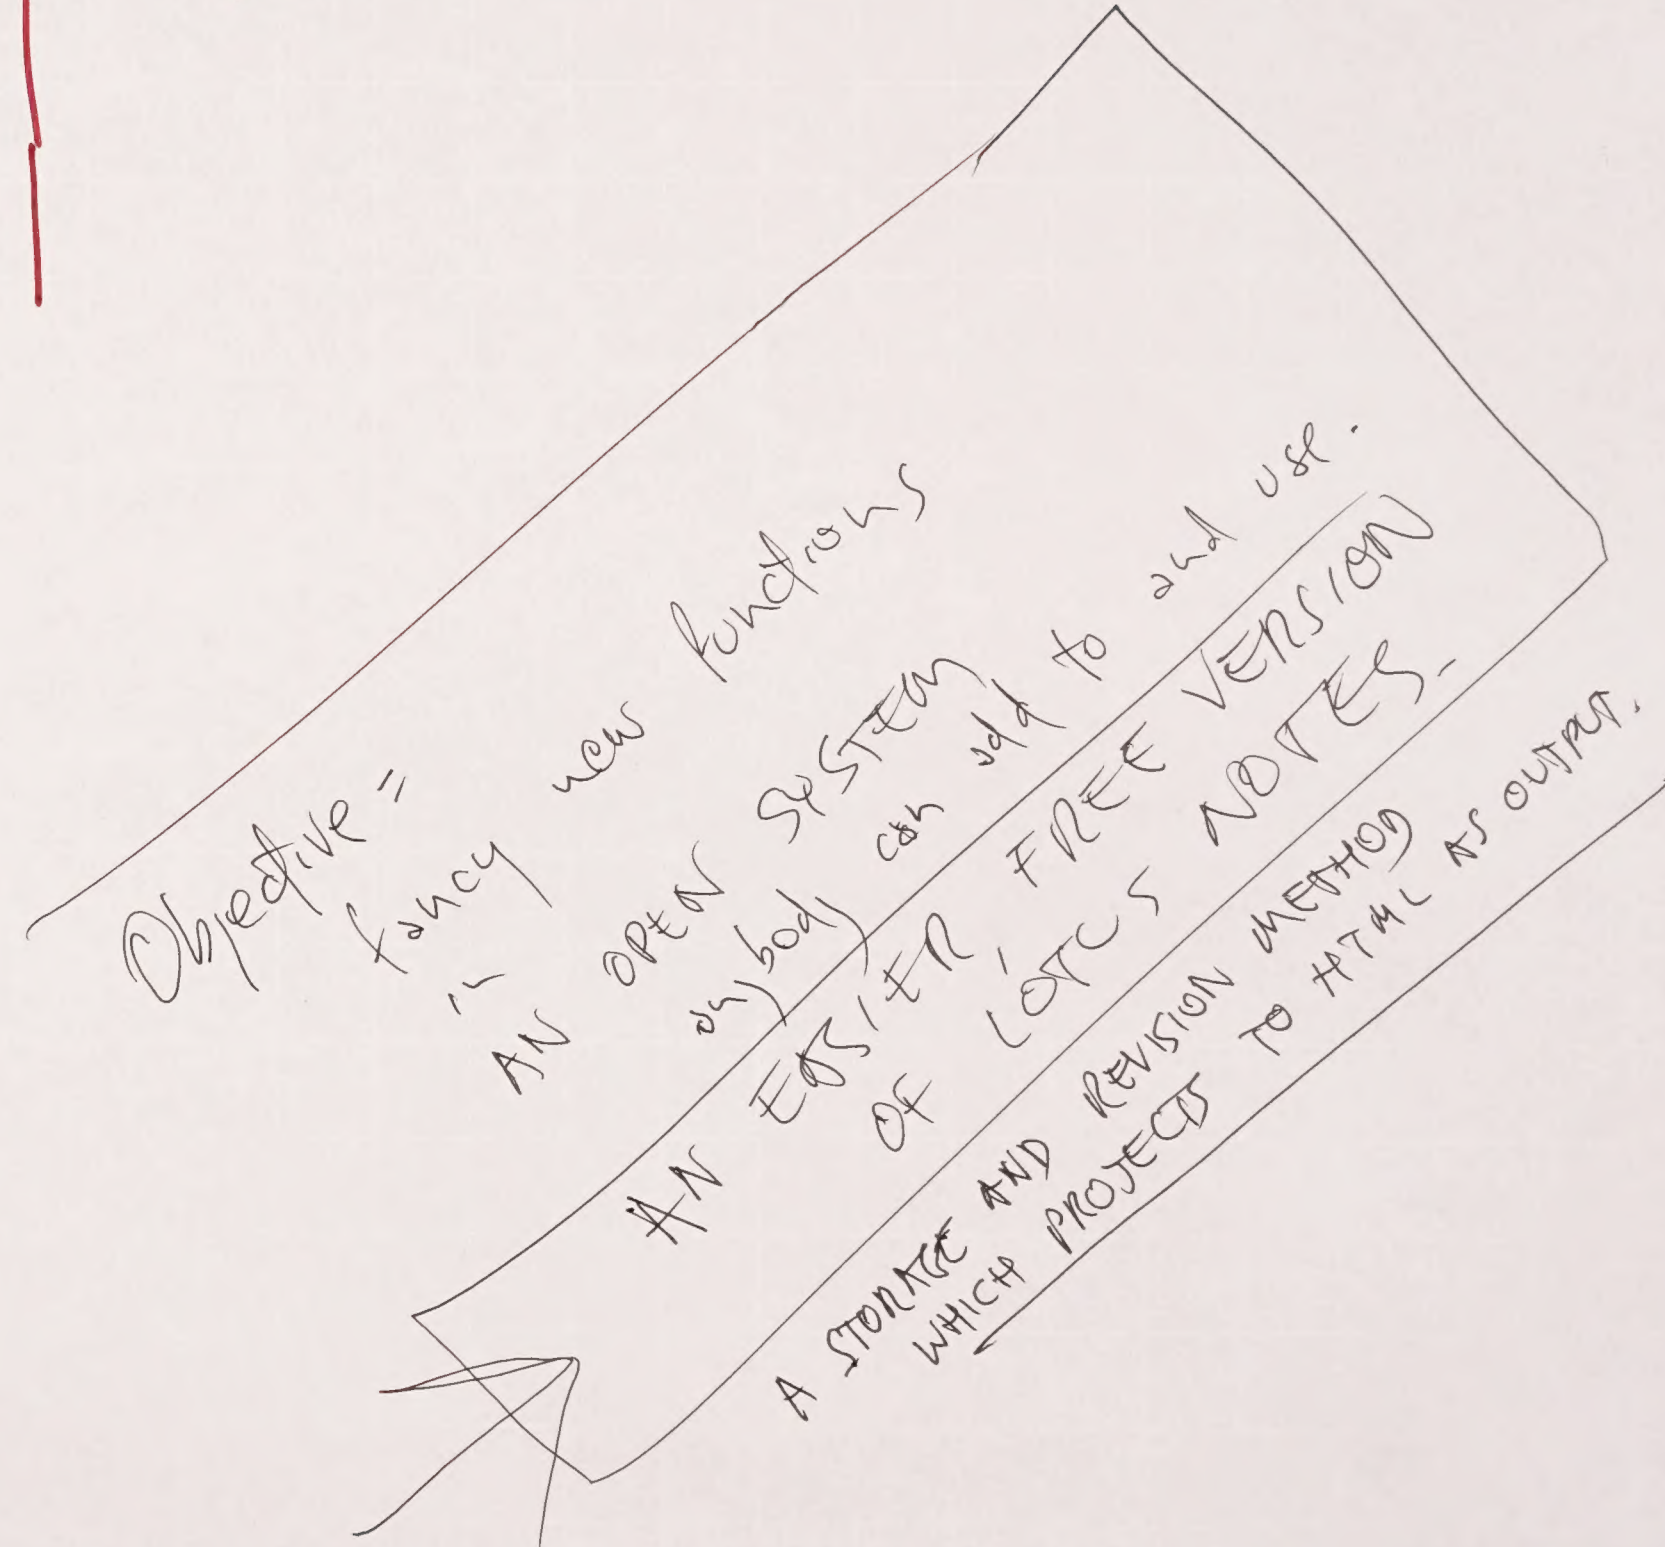 Objective =
fancy new functions
in
AN OPEN SYSTEM
anybody can add to and use.
AN EASIER FREE VERSION
OF LOTUS NOTES.
A STORAGE AND REVISION METHOD
WHICH PROJECTS TO HTML AS OUTPUT.